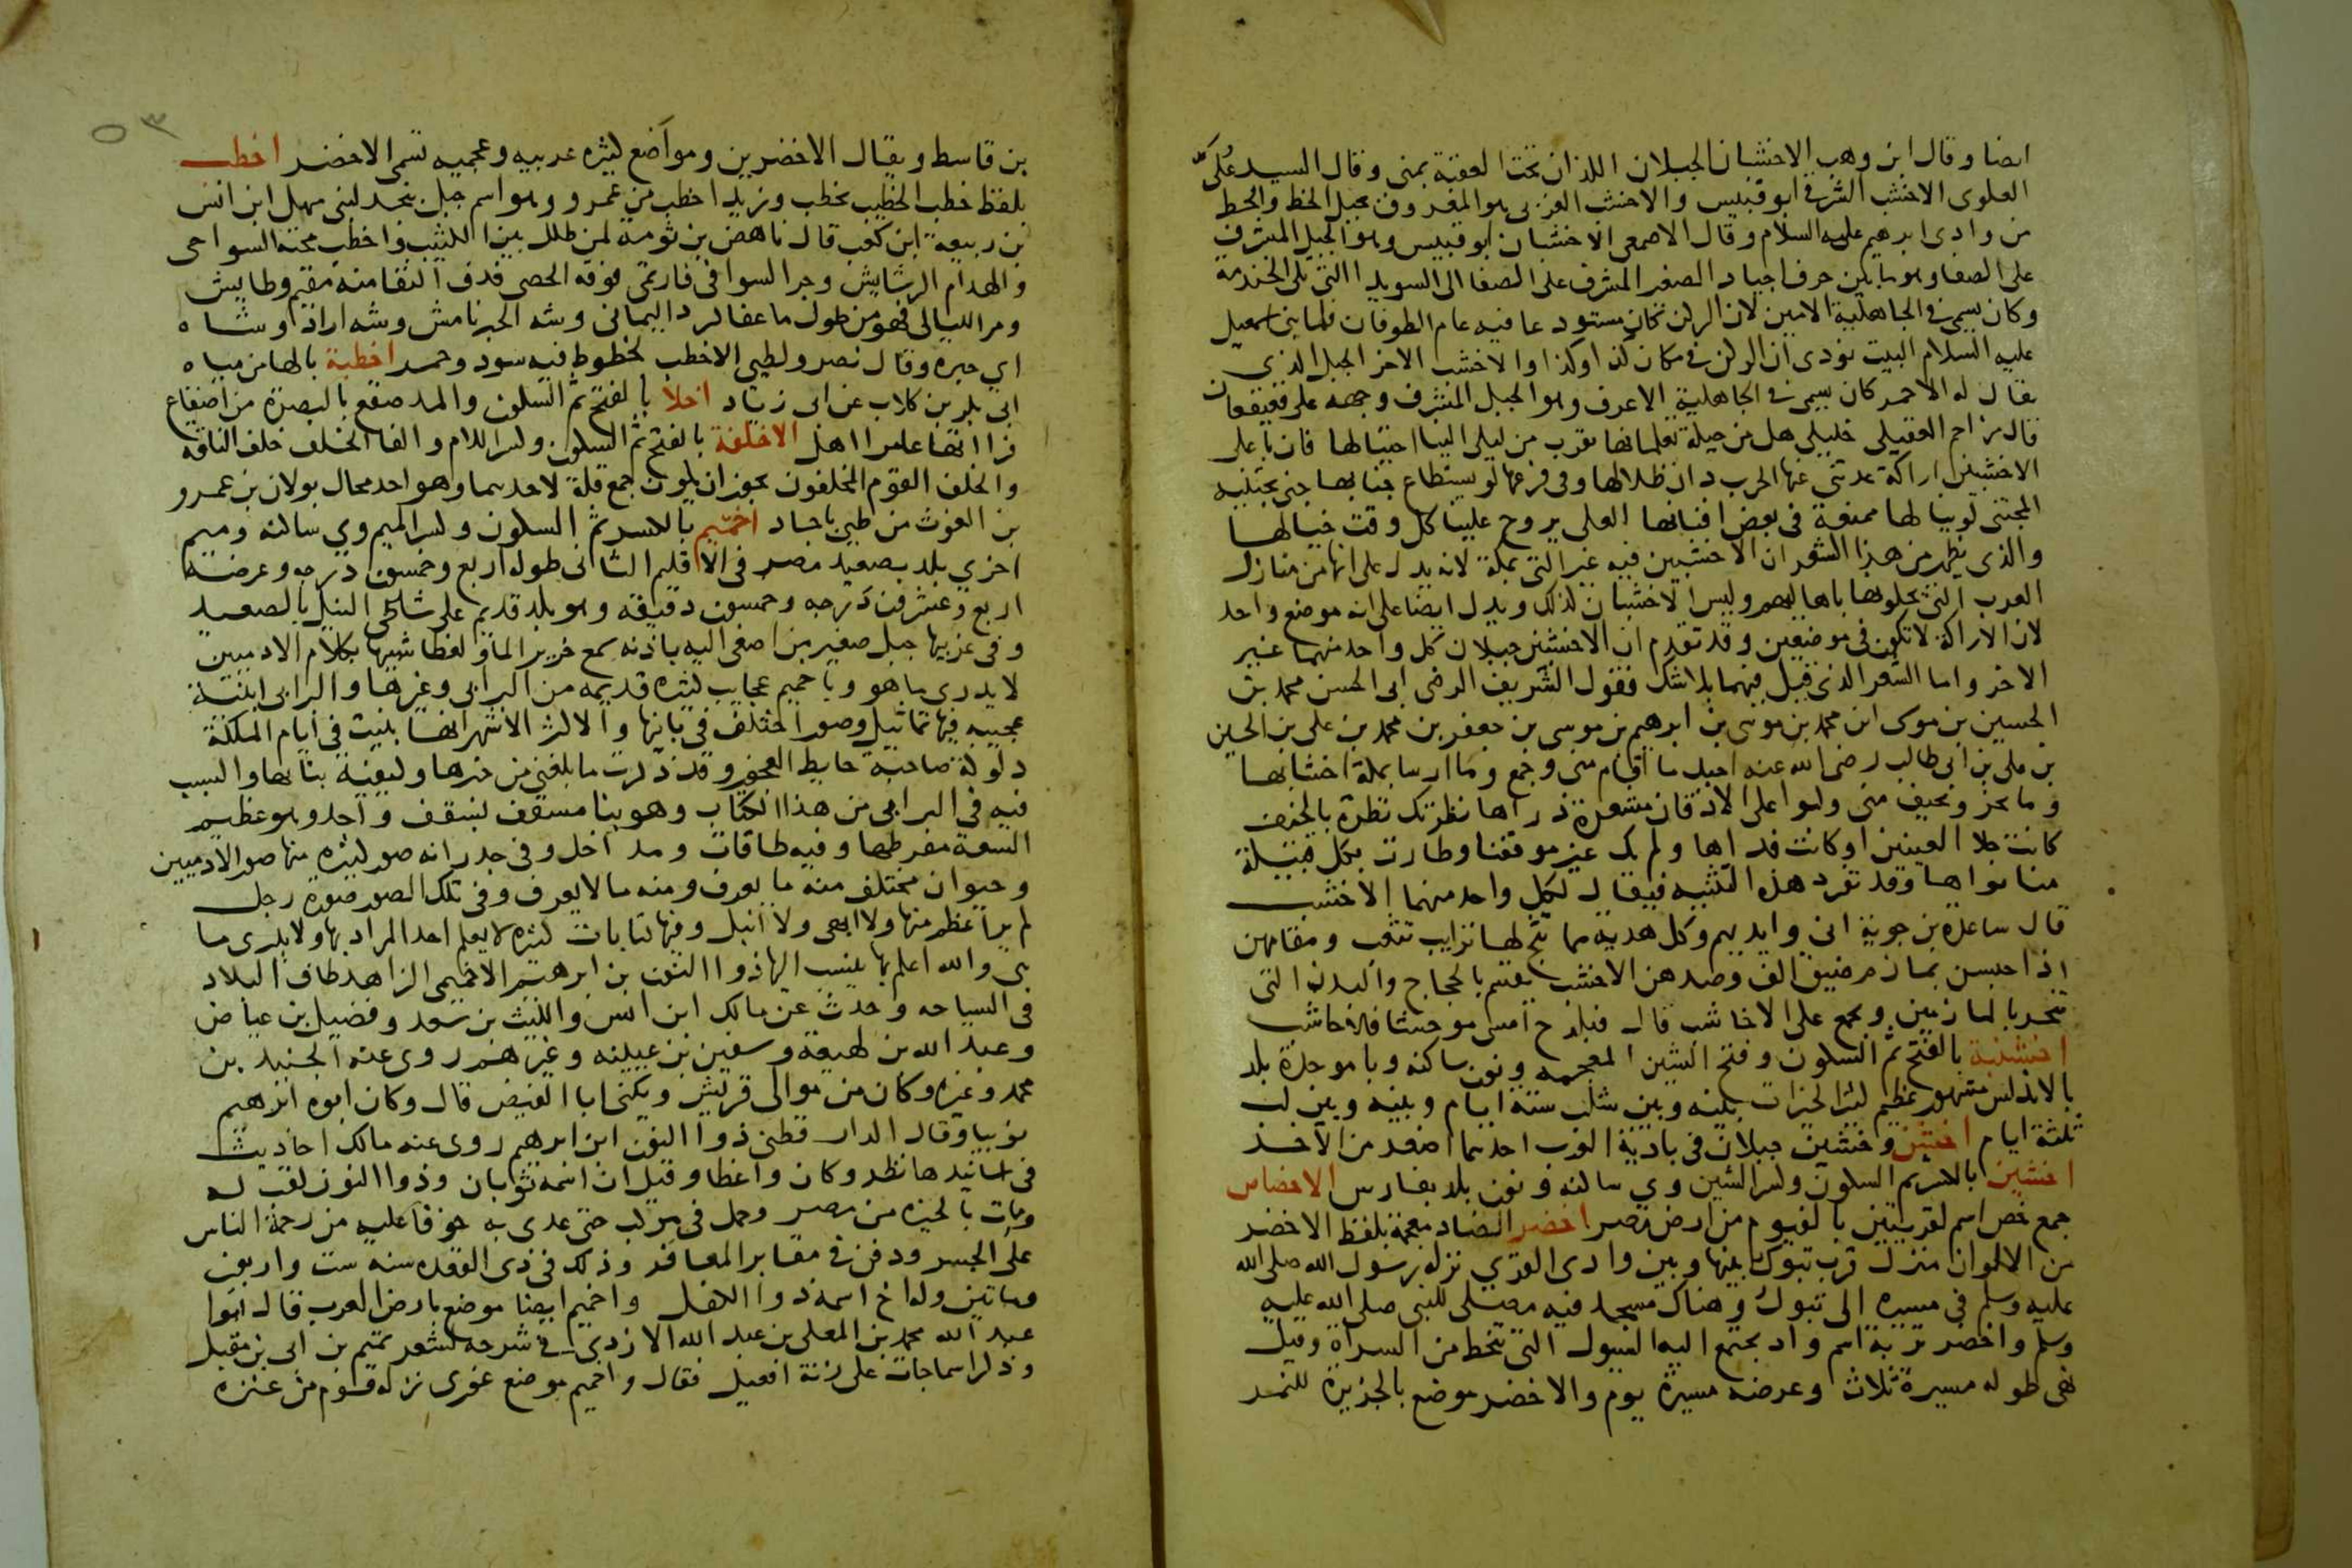 ايضا وقال ابن وهب الاخشبان الجبلان اللذان تحت العقبة بمنى وقال السيد عُلَىّ
العلوى الاخشب الشرقى ابو قبيس والاخشب الغربى هو المعروف بجبل الخط والخط
من وادى ابرهيم عليه السلام وقال الاصمعى الاخشبان ابو قبيس وهو الجبل المشرف
على الصفا وهو ما بين حرف اجياد الصغير المشرف على الصفا الى السويدا التى تلى الخندمة
وكان يسمى فى الجاهلية الامين لان الركن كان مستودعا فيه عام الطوفان فلما بنى اسمعيل
عليه السلام البيت نودى ان الركن فى مكان كذا وكذا والاخشب الاخر الجبل الذى
يقال له الاحمر كان يسمى فى الجاهلية الاعرف وهو الجبل المشرف وجهه على قعيقعان
قال مزاحم العقيلى خليلى هل من حيلة تعلمانها تقرب من ليلى الينا احتيالها فان باعلى
الاخشبين اراكة عدتنى عنها الحرب دان ظلالها وفى فرعها لو يستطاع جنابها جنى يجتنيه
المجتنى لو ينالها ممنعة فى بعض افنانها العلى يروح علينا كل وقت خيالها
والذى يظهر من هذا الشعر ان الاخشبين فيه غير التى بمكة لانه يدل على انها من منازل
العرب التى يحلونها باهاليهم وليس الاخشبان كذلك ويدل ايضا على انه موضع واحد
لان الاراكة لا تكون فى موضعين وقد تقدم ان الاخشبين جبلان كل واحد منهما غير
الاخر واما الشعر الذى قيل فيهما بلا شك فقول الشريف الرضى ابى الحسن محمد بن
الحسين بن موسى ابن محمد بن موسى بن ابرهيم بن موسى بن جعفر بن محمد بن على بن الحسين
بن على بن ابى طالب رضى الله عنه احبك ما اقام منى وجمع وما ارسا بمكة اخشابها
وما نحر وبخيف منى وكبوا على الاذقان مشعرة ذراها نظرتك نظرة بالخيف
كانت جلا العينين او كانت قذاها ولم يك غير موقفنا وطارت بكل قبيلة
منا نواها وقد تفرد هذه التثنيه فيقال لكل واحد منهما الاخشب
قال ساعدة بن جوية انى وايديهم وكل هدية مما تثج لها ترايب تثعب ومقامهن
اذا حبسن بمازم ضيق الف وصدهن الاخشب يقسم بالحجاج والبدن التى
تنحر بالمازمين ويجمع على الاخاشب قال فبلدح امسى موحشا فالاخاشب
اخشنبة بالفتح ثم السكون وفتح الشين المعجمه ونون ساكنه وبا موحدة بلد
بالاندلس مشهور عظيم كثير الخيرات بينه وبين شلب ستة ايام وبينه وبين لب
ثلثة ايام اخشن وخشين جبلان فى بادية العرب احدهما اصغر من الاخر
اخشين بالكسر ثم السكون وكسر الشين وى ساكنه ونون بلد بفارس الاخصاص
جمع خص اسم لقريتين بالفيوم من ارض مصر اخضر الضاد معجمة بلفظ الاخضر
من الالوان منزل قرب تبوك بينها وبين وادى القرى نزله رسول الله صلى الله
عليه وسلم فى مسيره الى تبوك وهناك مسجد فيه مصلى للنبى صلى الله عليه
وسلم واخضر تربة اسم واد يجتمع اليه السيول التى تنحط من السراة وقيل
نهى طوله مسيرة ثلاث وعرضه مسيرة يوم والاخضر موضع بالجزيرة للنمر
٥٣
بن قاسط ويقال الاخضرين ومواضع كثيره عربيه وعجميه تسمى الاخضر اخطب
بلفظ خطب الخطيب يخطب وزيد اخطب من عمرو وهو اسم جبل بنجد لبنى سهل ابن انس
بن ربيعة ابن كعب قال ناهض بن ثومة لمن طلل بين الكثيب واخطب محته السواحى
والهدام الرشايش وجر السوافى فارتمى فوقه الحصى فدف النقا منه مقيم وطايش
ومر الليالى فهو من طول ما عفا كبرد اليمانى وشه الحبر نامش وشه اراد وشاه
اى حبره وقال نصر ولطيى الاخطب لخطوط فيه سود وحمر اخطبة بالها من مياه
ابى بكر بن كلاب عن ابى زياد اخلا بالفتح ثم السكون والمد صقع بالبصرة من اصقاع
فراتها عامر اهل الاخلفة بالفتح ثم السكون وكسر اللام والفا الخلف خلف الناقه
والخلف القوم المخلفون يجوز ان يكون جمع قلة لاحدهما وهو احد محال بولان بن عمرو
بن الغوث من طيى باجاد اخميم بالكسر ثم السكون وكسر الميم وى ساكنه وميم
اخرى بلد بصعيد مصر فى الاقليم الثانى طوله اربع وخمسون درجه وعرضه
اربع وعشرون درجه وخمسون دقيقه وهو بلد قديم على شاطى النيل بالصعيد
وفى غربيها جبل صغير من اصغى اليه باذنه سمع خرير الماء ولغطا شبيها بكلام الادميين
لا يدرى ما هو وباخميم عجايب كثيره قديمه من البرابى وغيرها والبرابى ابنية
عجيبه فيها تماثيل وصور اختلف فى بانيها والاكثر الاشهر انها بنيت فى ايام الملكة
دلوكة صاحبة حايط العجوز وقد ذكرت ما بلغنى من خبرها وكيفية بنائها والسبب
فيه فى البرابى من هذا الكتاب وهو بنا مسقف بسقف واحد وهو عظيم
السعة مفرطها وفيه طاقات ومداخل وفى جدرانه صور كثيره منها صور الادميين
وحيوان مختلف منه ما يعرف ومنه ما لا يعرف وفى تلك الصور صورة رجل
لم ير اعظم منها ولا ابهى ولا انبل وفيها كتابات كثيره لا يعلم احد المراد بها ولا يدرى ما
هى والله اعلم بها ينسب اليها ذوا النون بن ابرهيم الاخميمى الزاهد طاف البلاد
فى السياحه وحدث عن مالك ابن انس والليث بن سعد وفضيل بن عياض
وعبد الله بن لهيعة وسفين بن عيينه وغيرهم روى عنه الجنيد بن
محمد وغيره وكان من موالى قريش ويكنى ابا الفيض قال وكان ابوه ابرهيم
نوبيا وقال الدار قطنى ذوا النون ابن ابرهم روى عنه مالك احاديث
فى اسانيدها نظر وكان واعظا وقيل ان اسمه ثوبان وذوا النون لقب له
ومات بالجيزه من مصر وحمل فى مركب حتى عدى به خوفا عليه من زحمة الناس
على الجسر ودفن فى مقابر المعافر وذلك فى ذى القعده سنه ست واربعين
وماتين وله اخ اسمه ذوا الكفل واخميم ايضا موضع بارض العرب قال ابوا
عبد الله محمد بن المعلى بن عبد الله الازدى فى شرحه لشعر تميم بن ابى بن مقبل
وذكر اسما جات على زنة افعيل فقال واخميم موضع غورى نزله قوم من عنزه